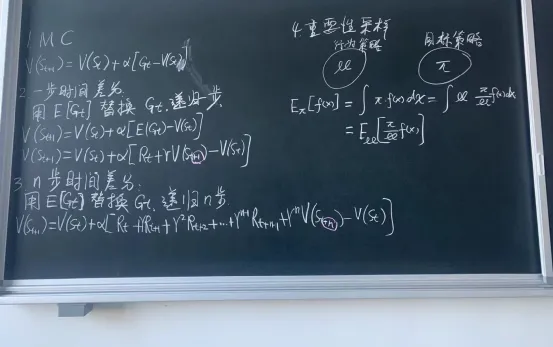 1. MC
V(St+1) = V(St) + α[Gt - V(St)]
2. 一步时间差分.
用 E[Gt] 替换 Gt, 递归一步
V(St+1) = V(St) + α[E(Gt) - V(St)]
V(St+1) = V(St) + α[Rt + γV(St+1) - V(St)]
3. n步时间差分.
用 E[Gt] 替换 Gt, 递归n步
V(St+1) = V(St) + α[Rt + γRt+1 + γ²Rt+2 + ... + γⁿ⁻¹Rt+n-1 + γⁿV(St+n) - V(St)]
4. 重要性采样
行为策略 目标策略
μ π
Eπ[f(x)] = ∫ π f(x) dx = ∫ μ π/μ f(x) dx
= Eμ[π/μ f(x)]